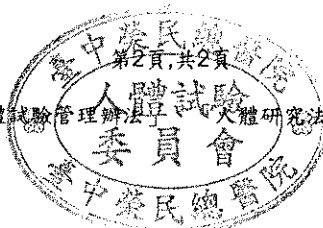 臺中榮民總醫院
第2頁,共2頁
人體試驗
體試驗管理辦法 人體研究法
委員會
臺中榮民總醫院